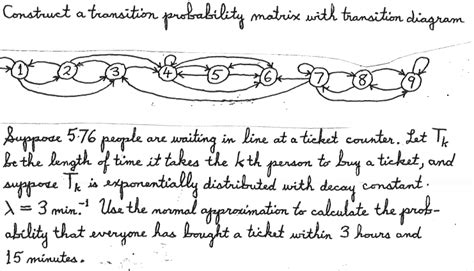 Construct a transition probability matrix with transition diagram
1 2 3 4 5 6 7 8 9
Suppose 576 people are waiting in line at a ticket counter. Let Tk
be the length of time it takes the k th person to buy a ticket, and
suppose Tk is exponentially distributed with decay constant.
λ = 3 min.⁻¹ Use the normal approximation to calculate the prob-
ability that everyone has bought a ticket within 3 hours and
15 minutes.